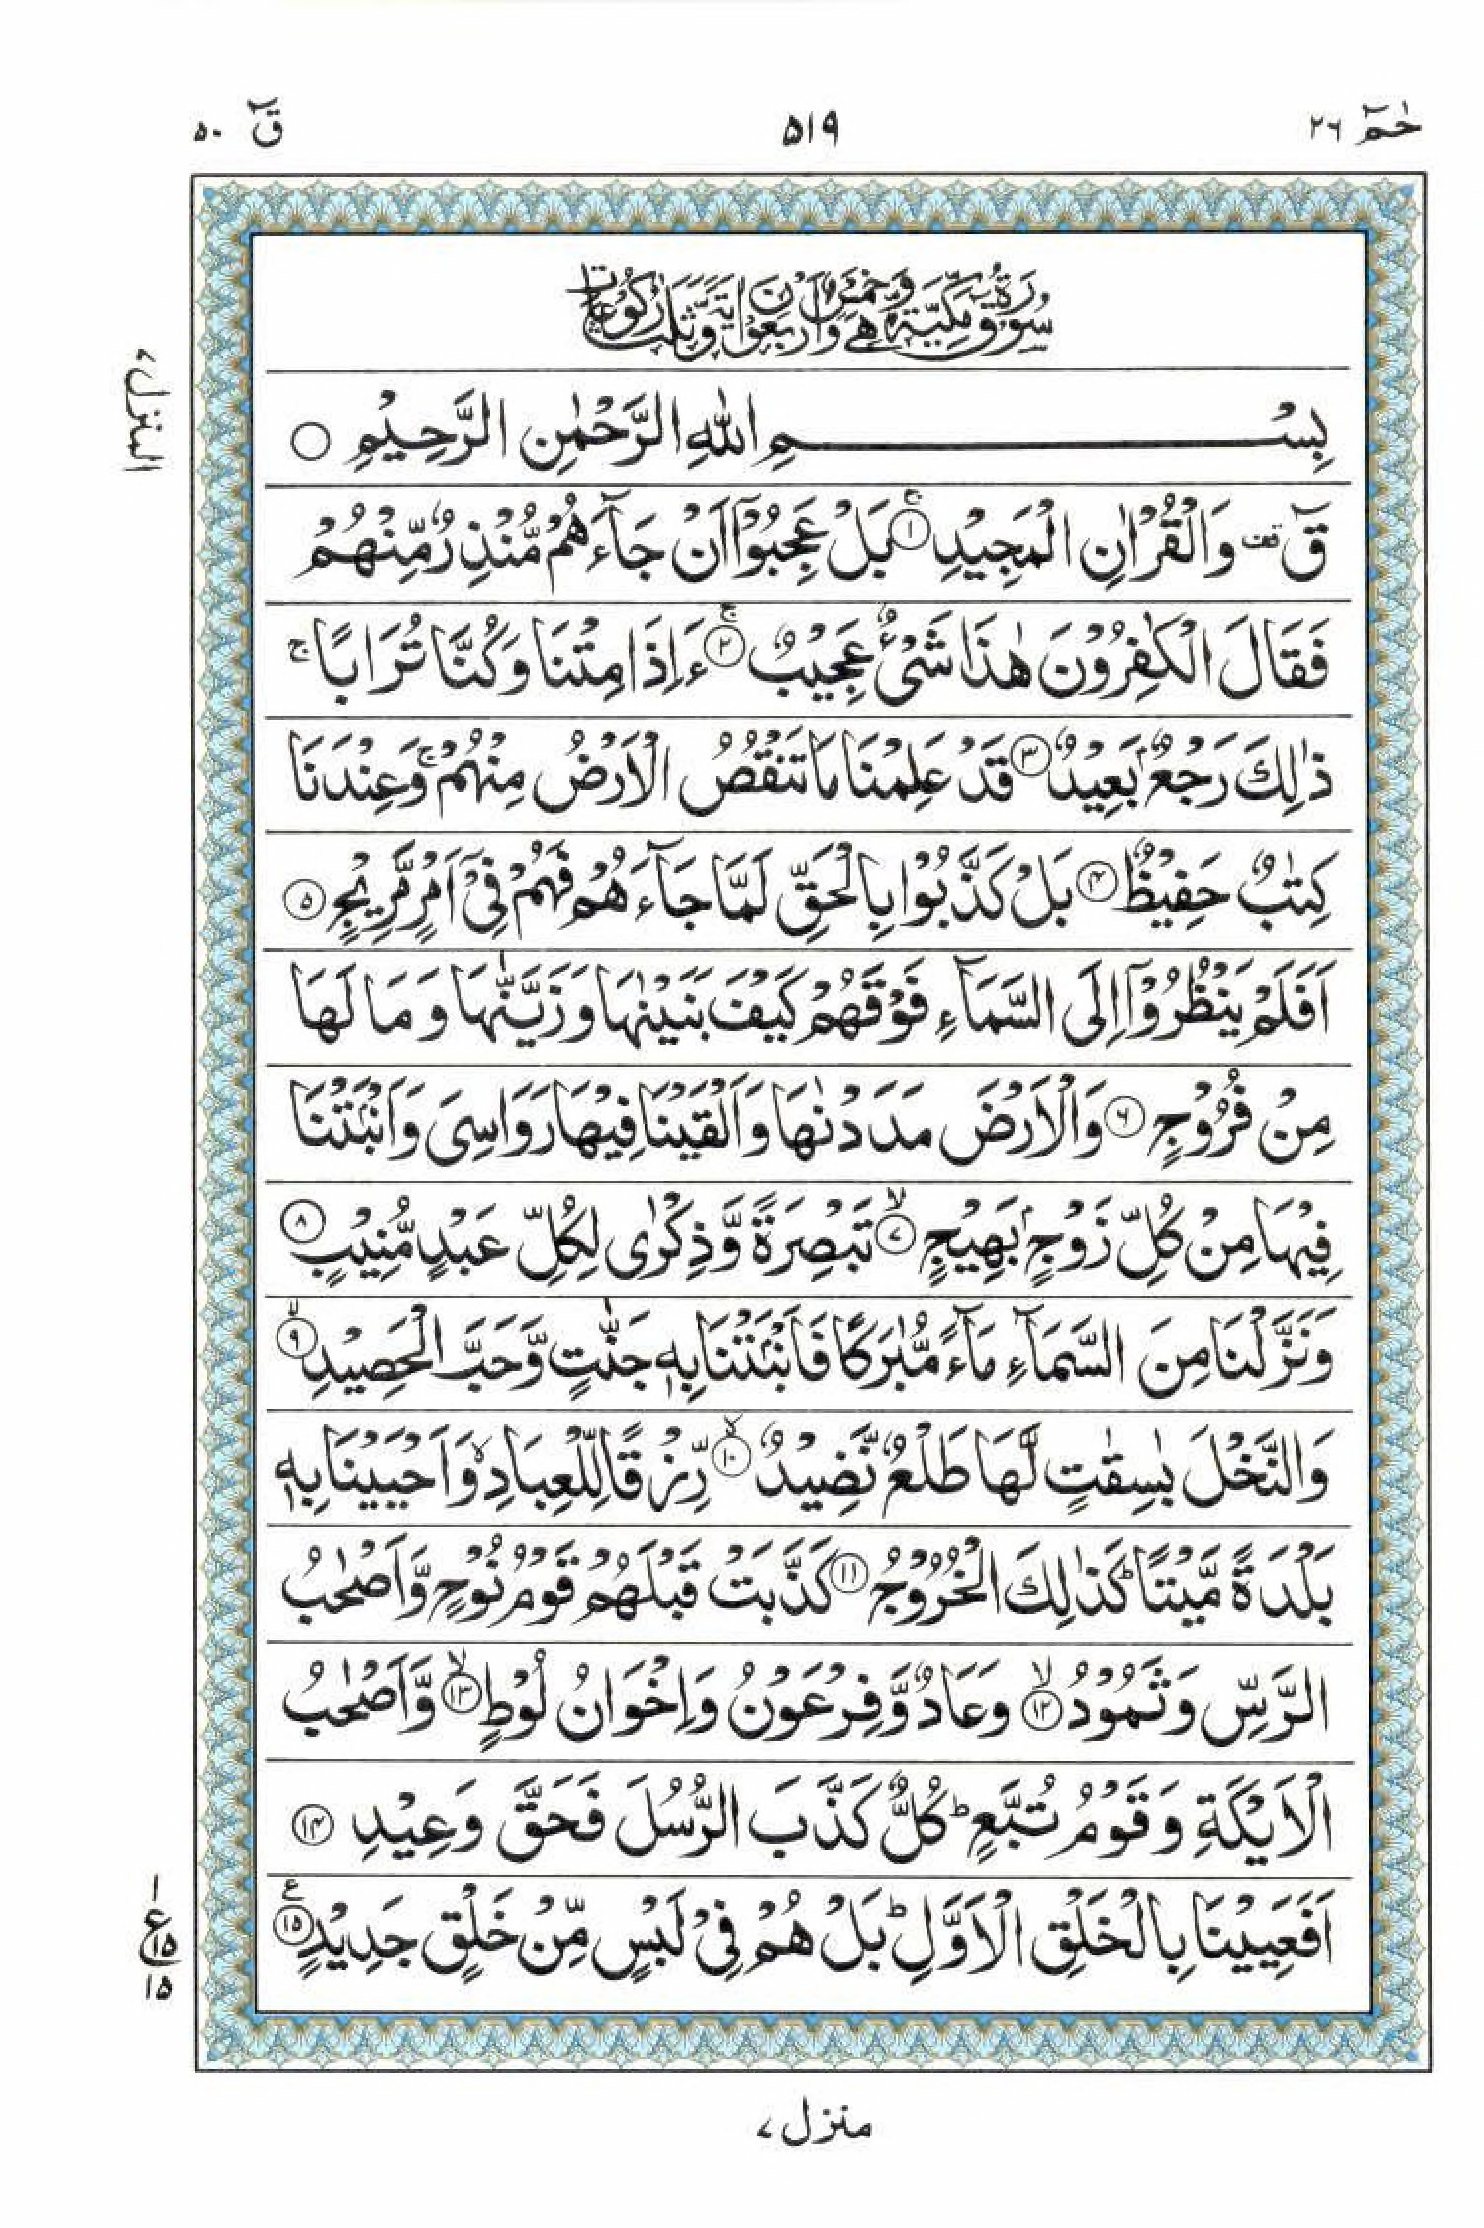 حٰمٓ ٢٦
٥١٩
قٓ ٥٠
سُوْرَةُ قٓ مَكِّيَّةٌ وَّهِيَ خَمْسٌ وَّاَرْبَعُوْنَ اٰيَةً وَّثَلٰثُ رُكُوْعَاتٍ
المنزل ٧
بِسْمِ اللهِ الرَّحْمٰنِ الرَّحِيْمِ ○
قٓ ۚ وَالْقُرْاٰنِ الْمَجِيْدِ ١ ج بَلْ عَجِبُوْٓا اَنْ جَآءَهُمْ مُّنْذِرٌ مِّنْهُمْ
فَقَالَ الْكٰفِرُوْنَ هٰذَا شَيْءٌ عَجِيْبٌ ٢ ج ءَاِذَا مِتْنَا وَكُنَّا تُرَابًا ج
ذٰلِكَ رَجْعٌۢ بَعِيْدٌ ٣ قَدْ عَلِمْنَا مَا تَنْقُصُ الْاَرْضُ مِنْهُمْ ج وَعِنْدَنَا
كِتٰبٌ حَفِيْظٌ ٤ بَلْ كَذَّبُوْا بِالْحَقِّ لَمَّا جَآءَهُمْ فَهُمْ فِيْٓ اَمْرٍ مَّرِيْجٍ ٥
اَفَلَمْ يَنْظُرُوْٓا اِلَى السَّمَآءِ فَوْقَهُمْ كَيْفَ بَنَيْنٰهَا وَزَيَّنّٰهَا وَمَا لَهَا
مِنْ فُرُوْجٍ ٦ وَالْاَرْضَ مَدَدْنٰهَا وَاَلْقَيْنَا فِيْهَا رَوَاسِيَ وَاَنْۢبَتْنَا
فِيْهَا مِنْ كُلِّ زَوْجٍۢ بَهِيْجٍ ٧ لا تَبْصِرَةً وَّذِكْرٰى لِكُلِّ عَبْدٍ مُّنِيْبٍ ٨
وَنَزَّلْنَا مِنَ السَّمَآءِ مَآءً مُّبٰرَكًا فَاَنْۢبَتْنَا بِهٖ جَنّٰتٍ وَّحَبَّ الْحَصِيْدِ ٩ لا
وَالنَّخْلَ بٰسِقٰتٍ لَّهَا طَلْعٌ نَّضِيْدٌ ١٠ لا رِّزْقًا لِّلْعِبَادِ لا وَاَحْيَيْنَا بِهٖ
بَلْدَةً مَّيْتًا ط كَذٰلِكَ الْخُرُوْجُ ١١ كَذَّبَتْ قَبْلَهُمْ قَوْمُ نُوْحٍ وَّاَصْحٰبُ
الرَّسِّ وَثَمُوْدُ ١٢ لا وَعَادٌ وَّفِرْعَوْنُ وَاِخْوَانُ لُوْطٍ ١٣ لا وَّاَصْحٰبُ
الْاَيْكَةِ وَقَوْمُ تُبَّعٍ ط كُلٌّ كَذَّبَ الرُّسُلَ فَحَقَّ وَعِيْدِ ١٤
اَفَعَيِيْنَا بِالْخَلْقِ الْاَوَّلِ ط بَلْ هُمْ فِيْ لَبْسٍ مِّنْ خَلْقٍ جَدِيْدٍ ١٥ ع
١
ع ١٥
١٥
منزل ٧